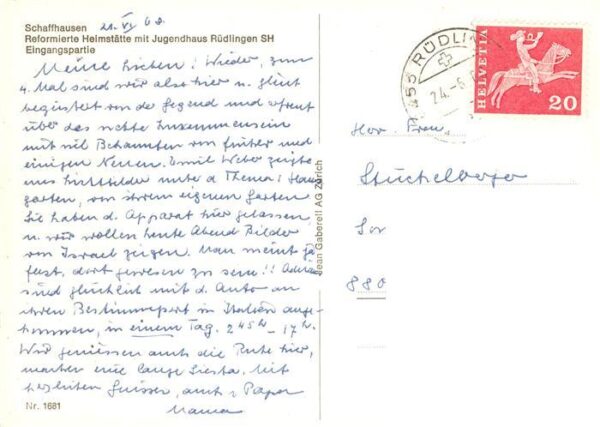 Schaffhausen 21. VI 68
Reformierte Heimstätte mit Jugendhaus Rüdlingen SH
Eingangspartie
Meine Lieben! Wieder, zum
4. Mal sind wir also hier u. gleich
begeistert von der Gegend und erfreut
über das nette Zusammensein
mit viel Bekannten von früher und
einigen Neuen. Emil Weber zeigte
uns Lichtbilder unter d. Thema: Haus
garten, von ihrem eigenen Garten
Sie haben d. Apparat hier gelassen
u. wir wollen heute Abend Bilder
von Israel zeigen. Man meint ja
fast, dort gewesen zu sein!!
sind glücklich mit d. Auto an
ihren Bestimmungsort in Italien ange-
kommen, in einem Tag. 2 45 h – 17 h.
Wir geniessen auch die Ruhe hier,
machen eine lange Siesta. Mit
herzlichen Grüssen, auch v. Papa
Mama
Nr. 1681
Jean Gaberell AG Zürich
8455 RÜDLIN
24.-6.
HELVETIA
20
Herr. Frau
Stückelberger
880